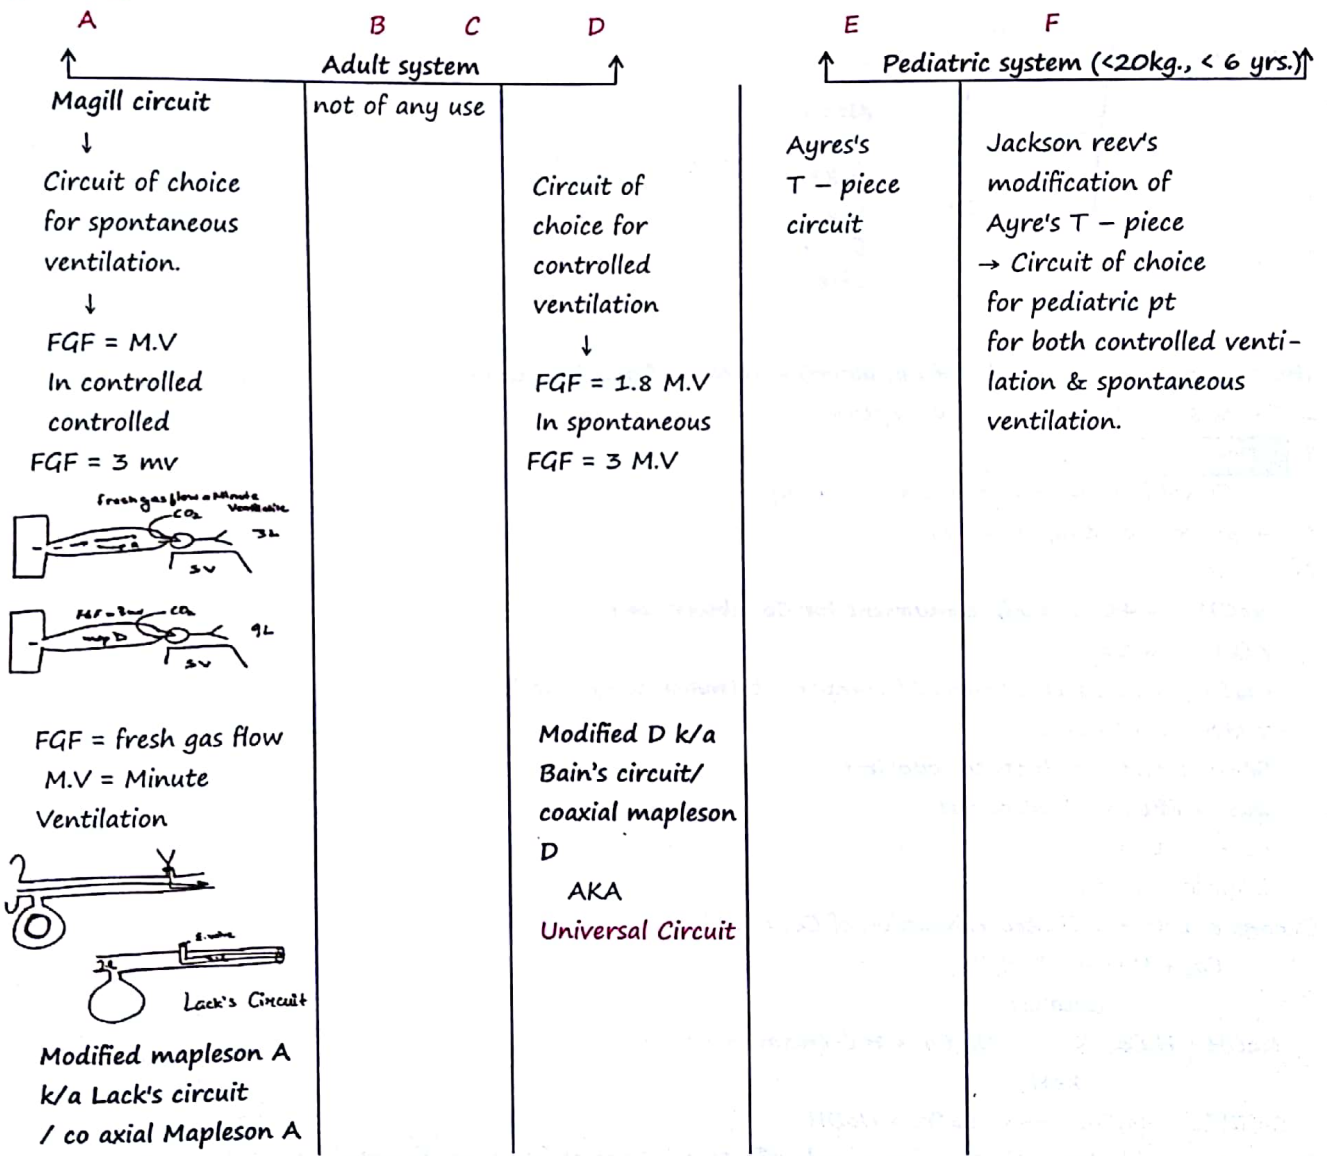 A
B
C
D
E
F
Adult system
Pediatric system (<20kg., < 6 yrs.)
Magill circuit
↓
Circuit of choice
for spontaneous
ventilation.
↓
FGF = M.V
In controlled
controlled
FGF = 3 mv
Fresh gas flow = Minute
Ventilation
CO2
3L
SV
CO2
map D
9L
SV
FGF = fresh gas flow
M.V = Minute
Ventilation
Lack's Circuit
Modified mapleson A
k/a Lack's circuit
/ co axial Mapleson A
not of any use
Circuit of
choice for
controlled
ventilation
↓
FGF = 1.8 M.V
In spontaneous
FGF = 3 M.V
Modified D k/a
Bain's circuit/
coaxial mapleson
D
AKA
Universal Circuit
Ayres's
T – piece
circuit
Jackson reev's
modification of
Ayre's T – piece
→ Circuit of choice
for pediatric pt
for both controlled venti-
lation & spontaneous
ventilation.